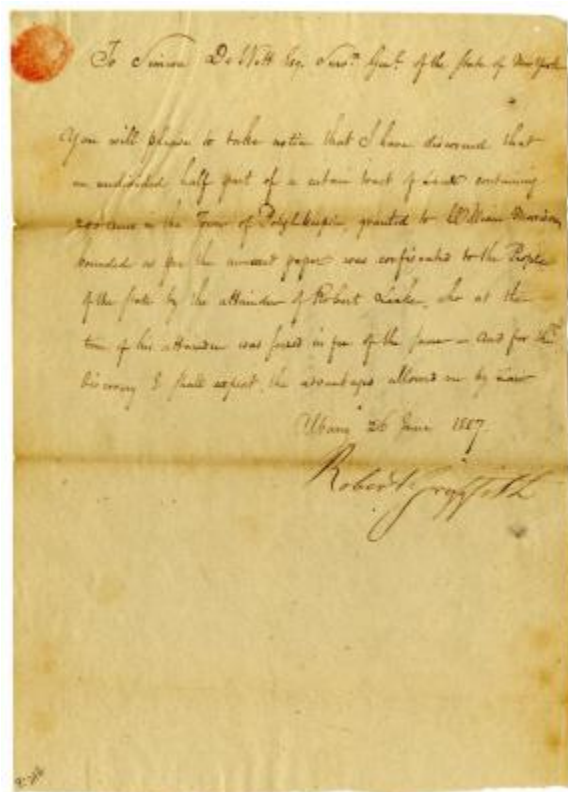 To Simeon De Witt Esq. Surv.r Genl. of the State of New York
You will please to take notice that I have discovered that
an undivided half part of a certain tract of Land containing
200 acres in the Town of Poughkeepsie granted to William Morrison
bounded as per the annexed paper was confiscated to the People
of the State by the attainder of Robert Leake, who at the
time of his attainder was seized in fee of the same – And for this
discovery I shall expect the advantages allowed me by Law
Albany 26 June 1807.
Robert Griffith